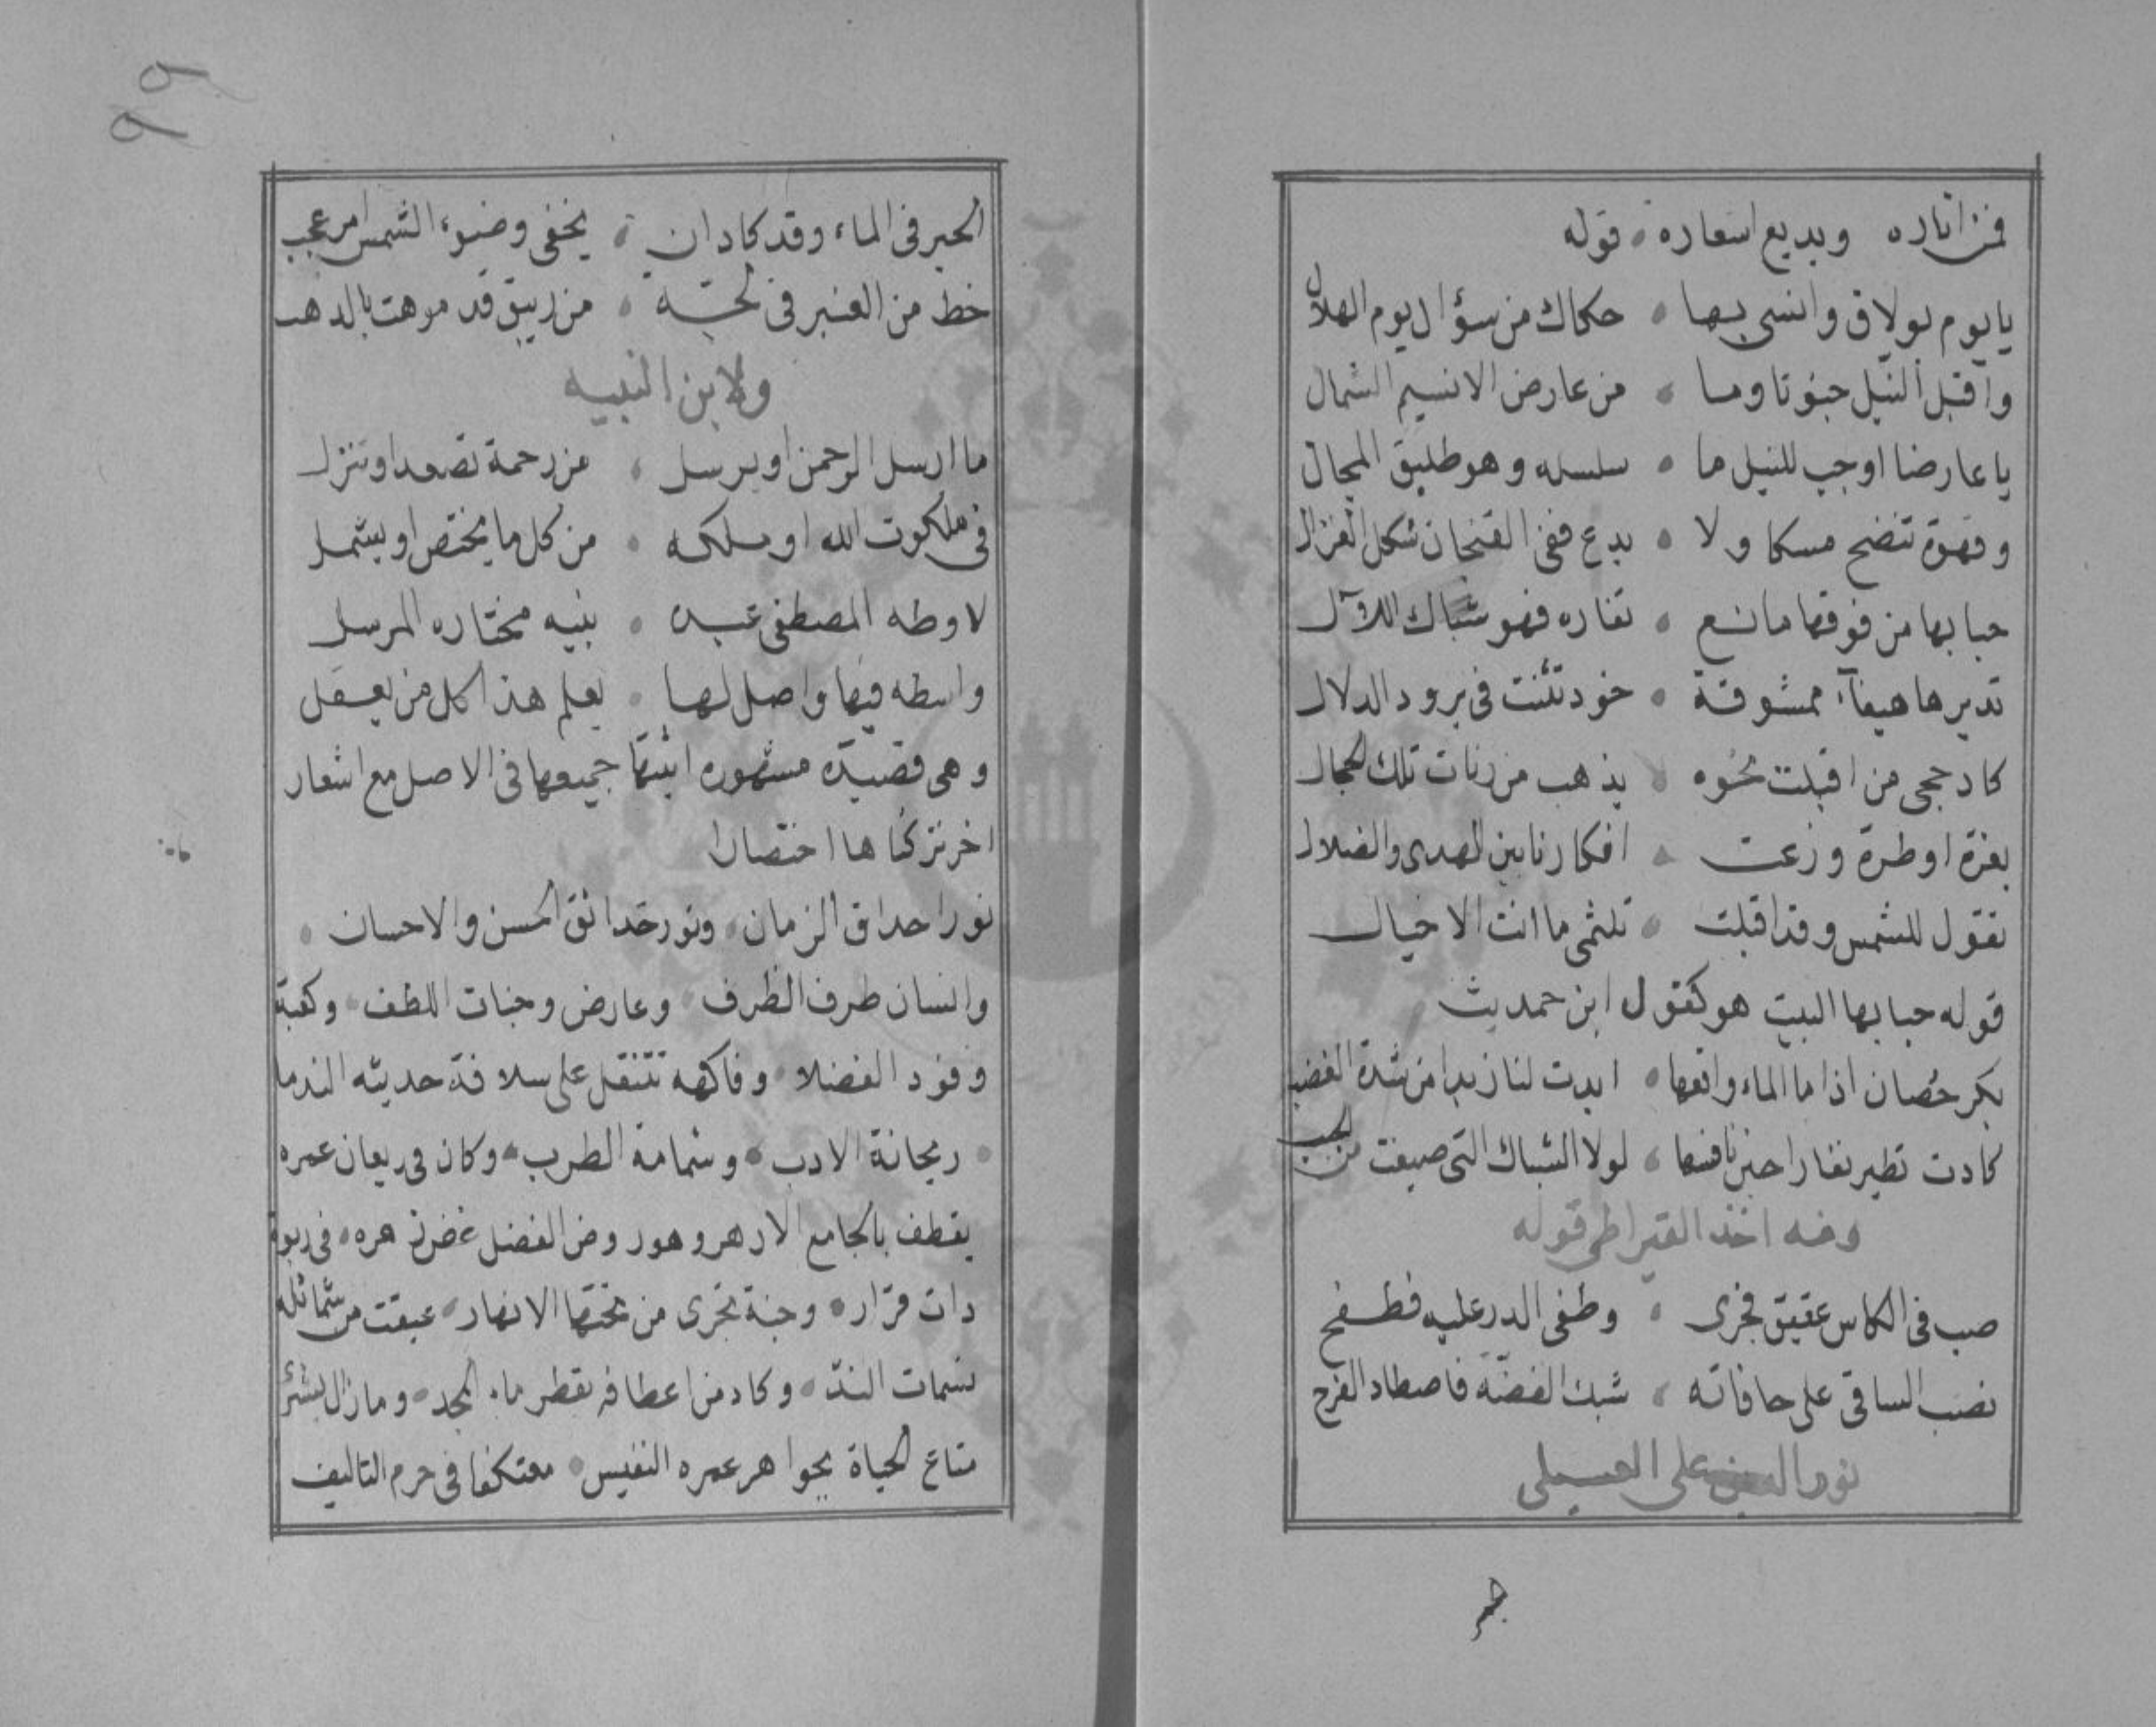 فمن اثاره وبديع اشعاره قوله
يا يوم بولاق وانسى بها حكاك من سؤال يوم الهلال
واقبل النيل جنونا وما من عارض الا نسيم الشمال
يا عارضا اوجب للنيل ما سلسله وهو طليق المجال
وقهوة تنضح مسكا ولا بدع ففى الفنجان شكل الغزال
حبابها من فوقها مانع نفاره فهو شباك اللآل
تديرها هيفآء ممشوقة خود تثنت فى برود الدلال
كاد حجى من اقبلت نحوه يذهب من رنات تلك الحجال
بغرة او طرة وزعت افكارنا بين الهدى والضلال
نقول للشمس وقد اقبلت تلثمى ما انت الا خيال
قوله حبابها البيت هو كقول ابن حمديث
بكر حصان اذا ما الماء واقعها ابدت لنا زبدا من شدة الغضب
كادت تطير نفارا حين نافسها لولا الشباك التى صيغت من الحبب
ومنه اخذ القيراطى قوله
صب فى الكاس عقيق فجرى وطفى الدر عليه فطفح
نصب الساقى على حافاته شبك الفضة فاصطاد الفرح
نور الدين على العسيلى
الحبر فى الماء وقد كاد ان يخفى وضوء الشمس امر عجب
خط من العنبر فى لجة من زيبق قد موهت بالذهب
ولابن النبيه
ما ارسل الرحمن او يرسل من رحمة تصعد او تنزل
فى ملكوت الله او ملكه من كل ما يختص او يشمل
الا وطه المصطفى عبده نبيه مختاره المرسل
واسطه فيها واصل لها يعلم هذا كل من يعقل
وهى قصيدة مشهوره اثبتها جميعها فى الاصل مع اشعار
اخر تركناها اختصارا
نور احداق الزمان ونور حدائق الحسن والاحسان
وانسان طرف الظرف وعارض وجنات اللطف وكعبة
وفود الفضلا وفاكهه تتنقل على سلافة حديثه الندما
ريحانة الادب وشمامة الطرب وكان فى ريعان عمره
يقطف بالجامع الازهر وهور وض الفضل غض زهره فى ربوة
ذات قرار وجنة تجرى من تحتها الانهار عبقت من شمائله
نسمات الند وكاد من اعطافه يقطر ماء المجد وما زال يشترى
متاع الحياة بجواهر عمره النفيس معتكفا فى حرم التاليف